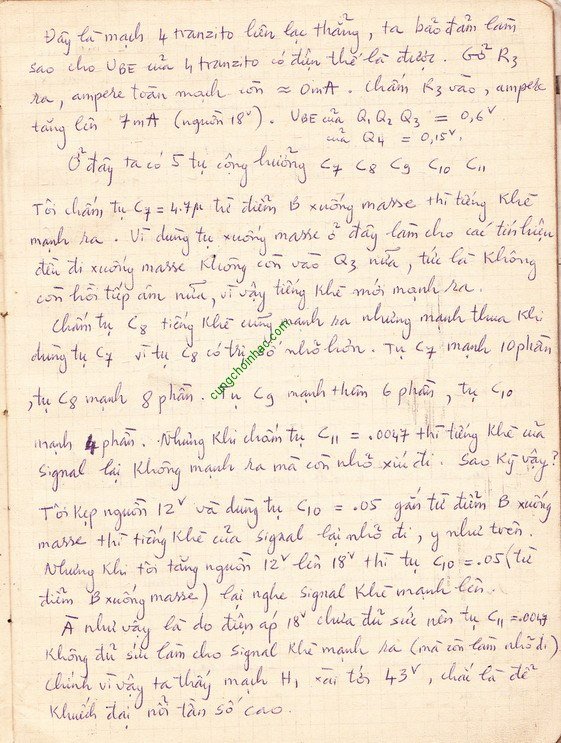 Đây là mạch 4 tranzito liên lạc thẳng, ta bảo đảm làm
sao cho UBE của 4 tranzito có điện thế là được. Gỡ R3
ra, ampere toàn mạch còn ≈ 0mA. Chấm R3 vào, ampere
tăng lên 7mA (nguồn 18V). UBE của Q1 Q2 Q3 = 0,6V
của Q4 = 0,15V.
Ở đây ta có 5 tụ cộng hưởng C7 C8 C9 C10 C11
Tôi chấm tụ C7 = 4.7µ từ điểm B xuống masse thì tiếng khè
mạnh ra. Vì dùng tụ xuống masse ở đây làm cho các tín hiệu
đều đi xuống masse không còn vào Q3 nữa, tức là không
còn hồi tiếp âm nữa, vì vậy tiếng khè mới mạnh ra.
Chấm tụ C8 tiếng khè cũng mạnh ra nhưng mạnh thua khi
dùng tụ C7 vì tụ C8 có trị số nhỏ hơn. Tụ C7 mạnh 10 phần
, tụ C8 mạnh 8 phần. Tụ C9 mạnh thêm 6 phần, tụ C10
mạnh 4 phần. Nhưng khi chấm tụ C11 = .0047 thì tiếng khè của
signal lại không mạnh ra mà còn nhỏ xíu đi. Sao kỳ vậy?
Tôi kẹp nguồn 12V và dùng tụ C10 = .05 gắn từ điểm B xuống
masse thì tiếng khè của signal lại nhỏ đi, y như trên.
Nhưng khi tôi tăng nguồn 12V lên 18V thì tụ C10 = .05 (từ
điểm B xuống masse) lại nghe signal khè mạnh lên.
À như vậy là do điện áp 18V chưa đủ sức nên tụ C11 = .0047
không đủ sức làm cho signal khè mạnh ra (mà còn làm nhỏ đi)
chính vì vậy ta thấy mạch H1 xài tới 43V, chắc là để
khuếch đại nổi tần số cao.
cungchoinhac.com